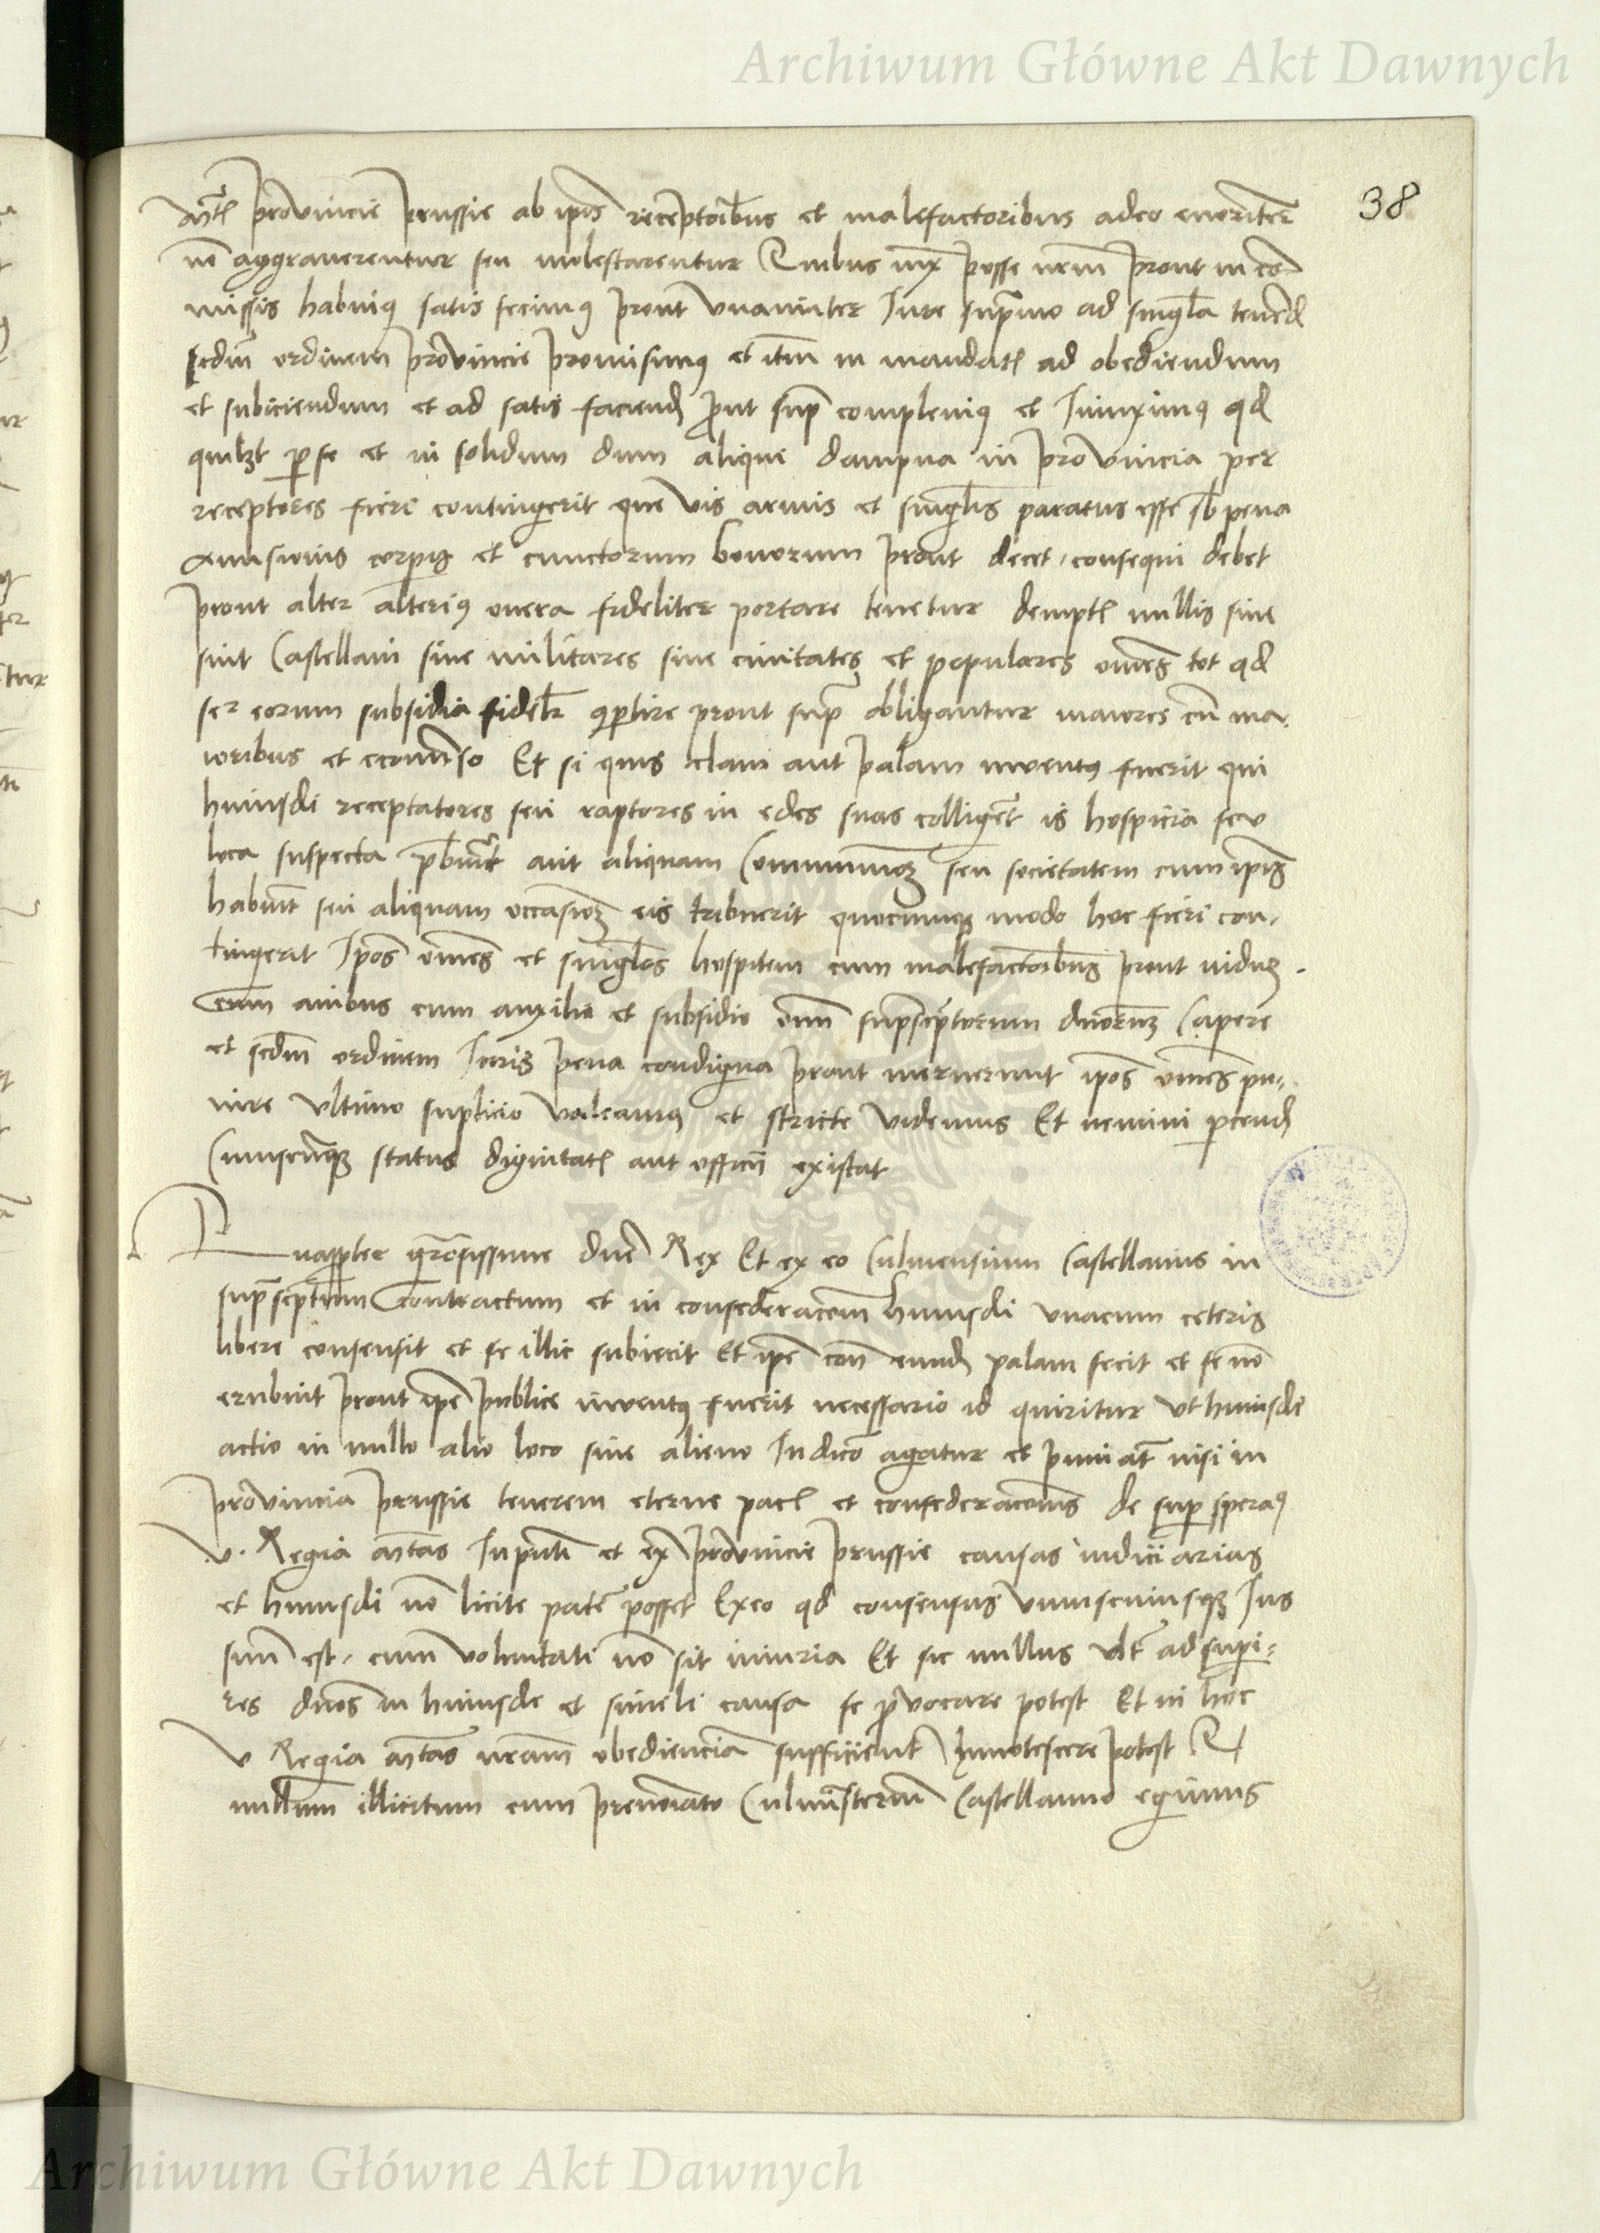 Archiwum Główne Akt Dawnych
38
provincie prussie ab ipis receptoribus et malefactoribus adeo enormiter
ne aggraverentur seu molestarentur Quibus iux posse nrm prout in co
missis habuimq satis fecimq prout unanimiter Jure supremo ad singula tenend
scdm ordinem provincie promisimq et itm in mandatis ad obediendum
et subiciendum et ad satis faciend prout sup complevimq et Iniunximq qd
quilzt per se et in solidum dum alique dampna in provincia per
receptores fieri contingerit que vis armis et singulis paratus esse sb pena
amissionis corporis et cunctorum bonorum prout decet consequi debet
prout alter alterius onera fideliter portare tenetur demptis nullis sive
sint Castellani sive militares sive civitates et populares omnes tot qd
eorum subsidia fideliter prout supra obligantur maiores cum ma
ioribus et econverso Et si quis clam aut palam inventus fuerit qui
huiusdi receptatores seu raptores in edes suas colligeret is hospicia seu
loca suspecta prebuerit aut aliquam Communionem seu societatem cum ipsis
habuerit seu aliquam occasionem eis tribuerit quocumque modo hoc fieri con
tingerit Ipos omnes et singulos hospitem cum malefactoribus prout
cum auxilio et subsidio omnium suprascriptorum dnorum Capere
et scdm ordinem Juris pena condigna prout meruerunt ipos omnes pu
nire ultimo suplicio valeamq et stricte videmus Et nemini parcend
Cuiuscunque status dignitatis aut officii existat
Quapropter graciosissime dne Rex Et ex eo Culmensium Castellanus in
suprascriptum Contractum et in confederacionem huiusdi unacum ceteris
libere consensit et se illic subiecit Et ipe contra eund palam fecit et se non
erubuit prout ipe publice inventus fuerit necessario id quiritur ut huiusdi
actio in nullo alio loco sive alieno Judicio agatur et puniatur nisi in
provincia prussie tenorem eterne pacis et confederacionis de super speramus
v. Regia Mtas Inprimis et ex provincie prussie causas iudiciarias
et huiusdi non licite patere posset Ex eo qd consensus uniuscuiusque Jus
suum est cum voluntati non sit iniuria Et sic nullus ultra ad superi
res dnos in huiusde et simili causa se provocare potest Et in hoc
v Regia Mtas nram obedienciam sufficienter Innotescere potest Q
nullum illicitum cum prenominato Culmensterium Castellanno egimus
Archiwum Główne Akt Dawnych